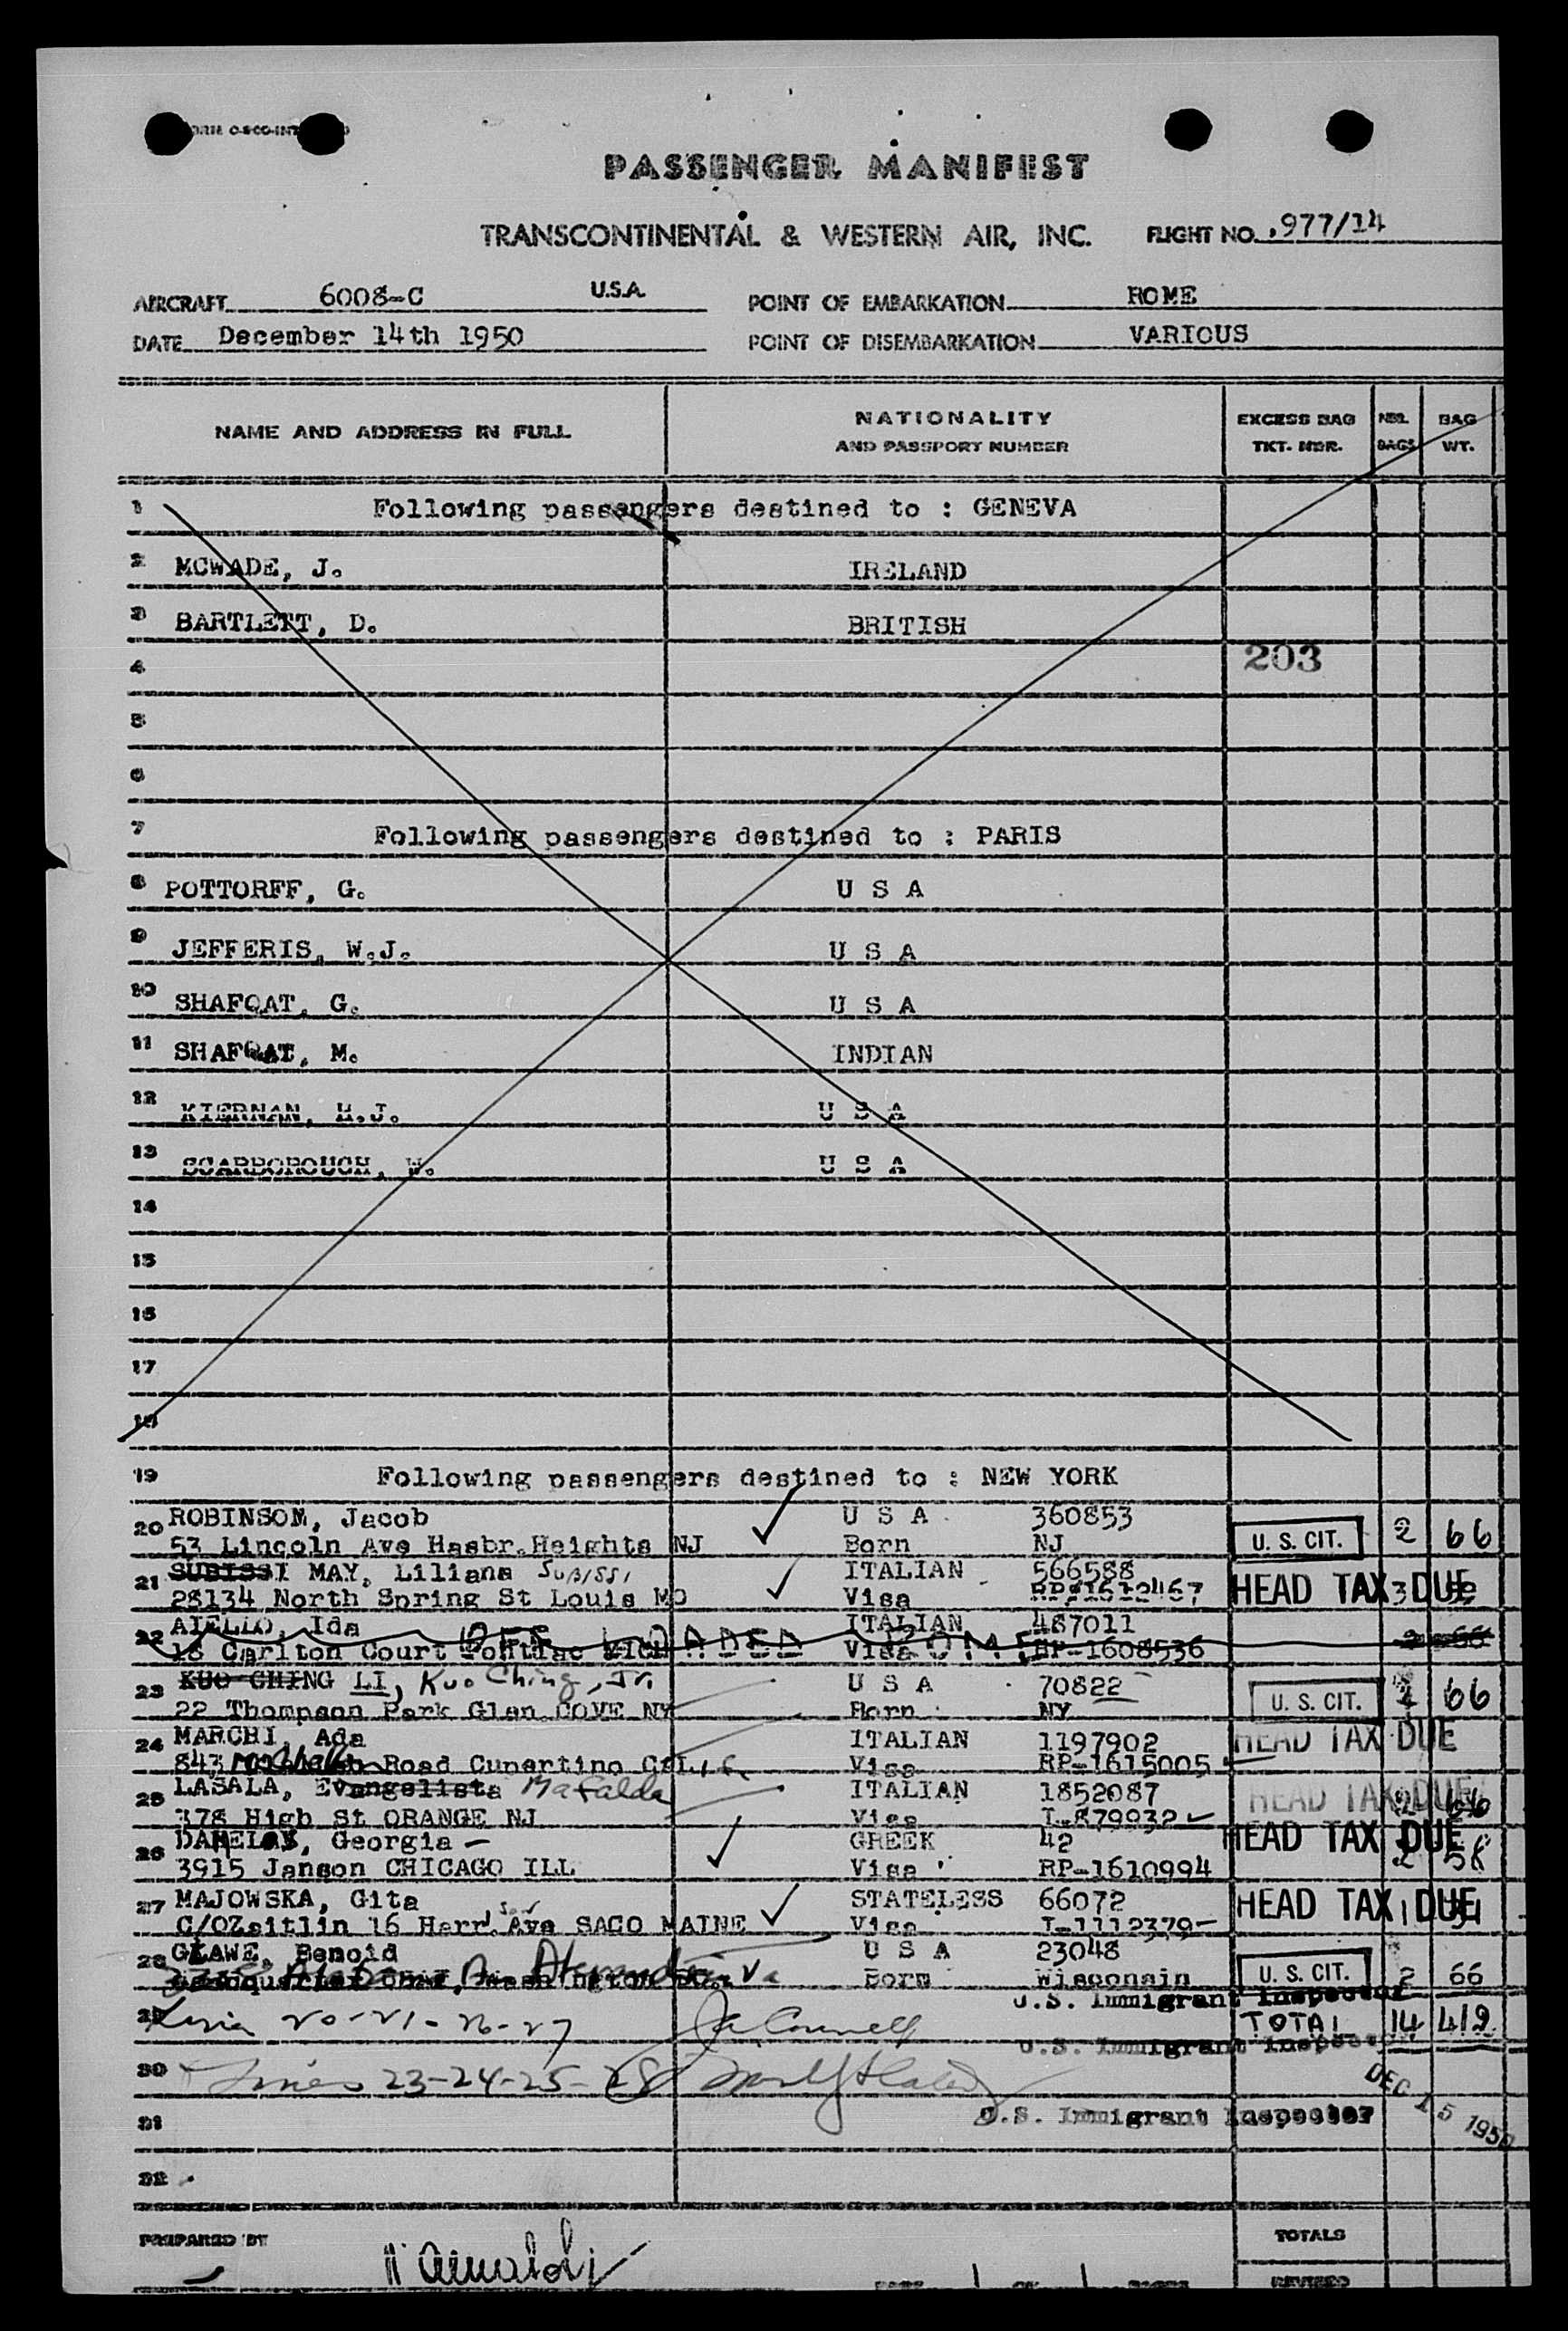 PASSENGER MANIFEST
TRANSCONTINENTAL & WESTERN AIR, INC. FLIGHT NO. 977/14
AIRCRAFT 6008-C U.S.A. POINT OF EMBARKATION ROME
DATE December 14th 1950 POINT OF DISEMBARKATION VARIOUS
NAME AND ADDRESS IN FULL NATIONALITY AND PASSPORT NUMBER EXCESS BAG TKT. NBR. NBR. BAGS BAG WT.
1 Following passengers destined to : GENEVA
2 MCWADE, J. IRELAND
3 BARTLETT, D. BRITISH
4 203
5
6
7 Following passengers destined to : PARIS
8 POTTORFF, G. U S A
9 JEFFERIS, W.J. U S A
10 SHAFQAT, G. U S A
11 SHAFQAT, M. INDIAN
12 KIERNAN, H.J. U S A
13 SCARBOROUGH, W. U S A
14
15
16
17
18
19 Following passengers destined to : NEW YORK
20 ROBINSON, Jacob U S A 360853
53 Lincoln Ave Hasbr.Heights NJ Born NJ U. S. CIT. 2 66
21 SUBISSI MAY, Liliana SUBISSI ITALIAN 566588
28134 North Spring St Louis MO Visa RP-1612467 HEAD TAX DUE 3
22 AIELLO, Ida ITALIAN 487011
18 Carlton Court Pontiac MICH Visa RP-1608536 2 66
OFF LOADED ROME
23 KUO CHING LI, Kuo Ching, Jr. U S A 70822
22 Thompson Park Glen COVE NY Born NY U. S. CIT. 66
24 MARCHI, Ada ITALIAN 1197902 HEAD TAX DUE
843 Road Cupertino CAL Visa RP-1615005
25 LASALA, Evangelista Mafalda ITALIAN 1852087 HEAD TAX DUE 2 66
378 High St ORANGE NJ Visa I-879932
26 Georgia GREEK 42 HEAD TAX DUE
3915 Janson CHICAGO ILL Visa RP-1610994 2 58
27 MAJOWSKA, Gita STATELESS 66072 HEAD TAX DUE 1
C/OZeitlin 16 Ave SACO MAINE Visa I-1112379
28 GLAWE, Benoid U S A 23048
Alexandria Va Born Wisconsin U. S. CIT. 2 66
U.S. Immigrant Inspector
29 20-21-26-27 TOTAL 14 412
U.S. Immigrant Inspector
30 Lines 23-24-25-28 DEC 15 1950
31 U.S. Immigrant Inspector
32
PREPARED BY TOTALS
REVISED